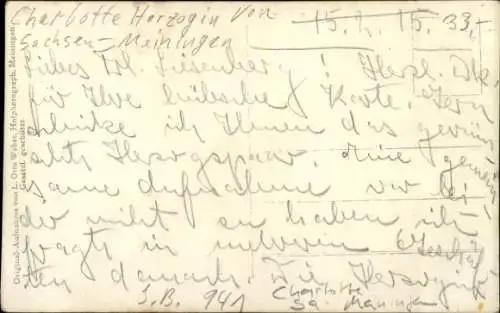 Charlotte Herzogin von
Sachsen-Meiningen
15. 33.-
Liebes Frl. Liesenberg! Herzl. Dk.
für Ihre hübsche Karte. Gern
schicke ich Ihnen das gewün
schte Herzogspaar. Eine gemein
same Aufnahme war lei
der nicht zu haben, ich
fragte in mehreren Geschäf
ten danach. Die Herzogin
S.B. 941
Charlotte
Sa. Meiningen
Original-Aufnahme von L. Otto Weber, Hofphotograph, Meiningen.
Gesetzl. geschützt.